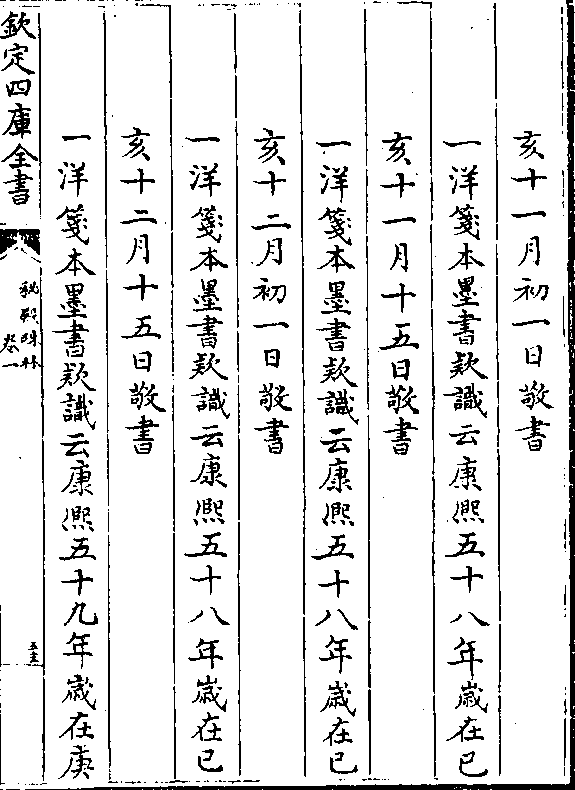 亥十一月初一日敬書
一洋箋本墨書欵識云康熙五十八年歲在已
亥十一月十五日敬書
一洋箋本墨書欵識云康熙五十八年歲在已
亥十二月初一日敬書
一洋箋本墨書欵識云康熙五十八年歲在已
亥十二月十五日敬書
一洋箋本墨書欵識云康熙五十九年歲在庚
欽定四庫全書
秘殿珠林
卷一